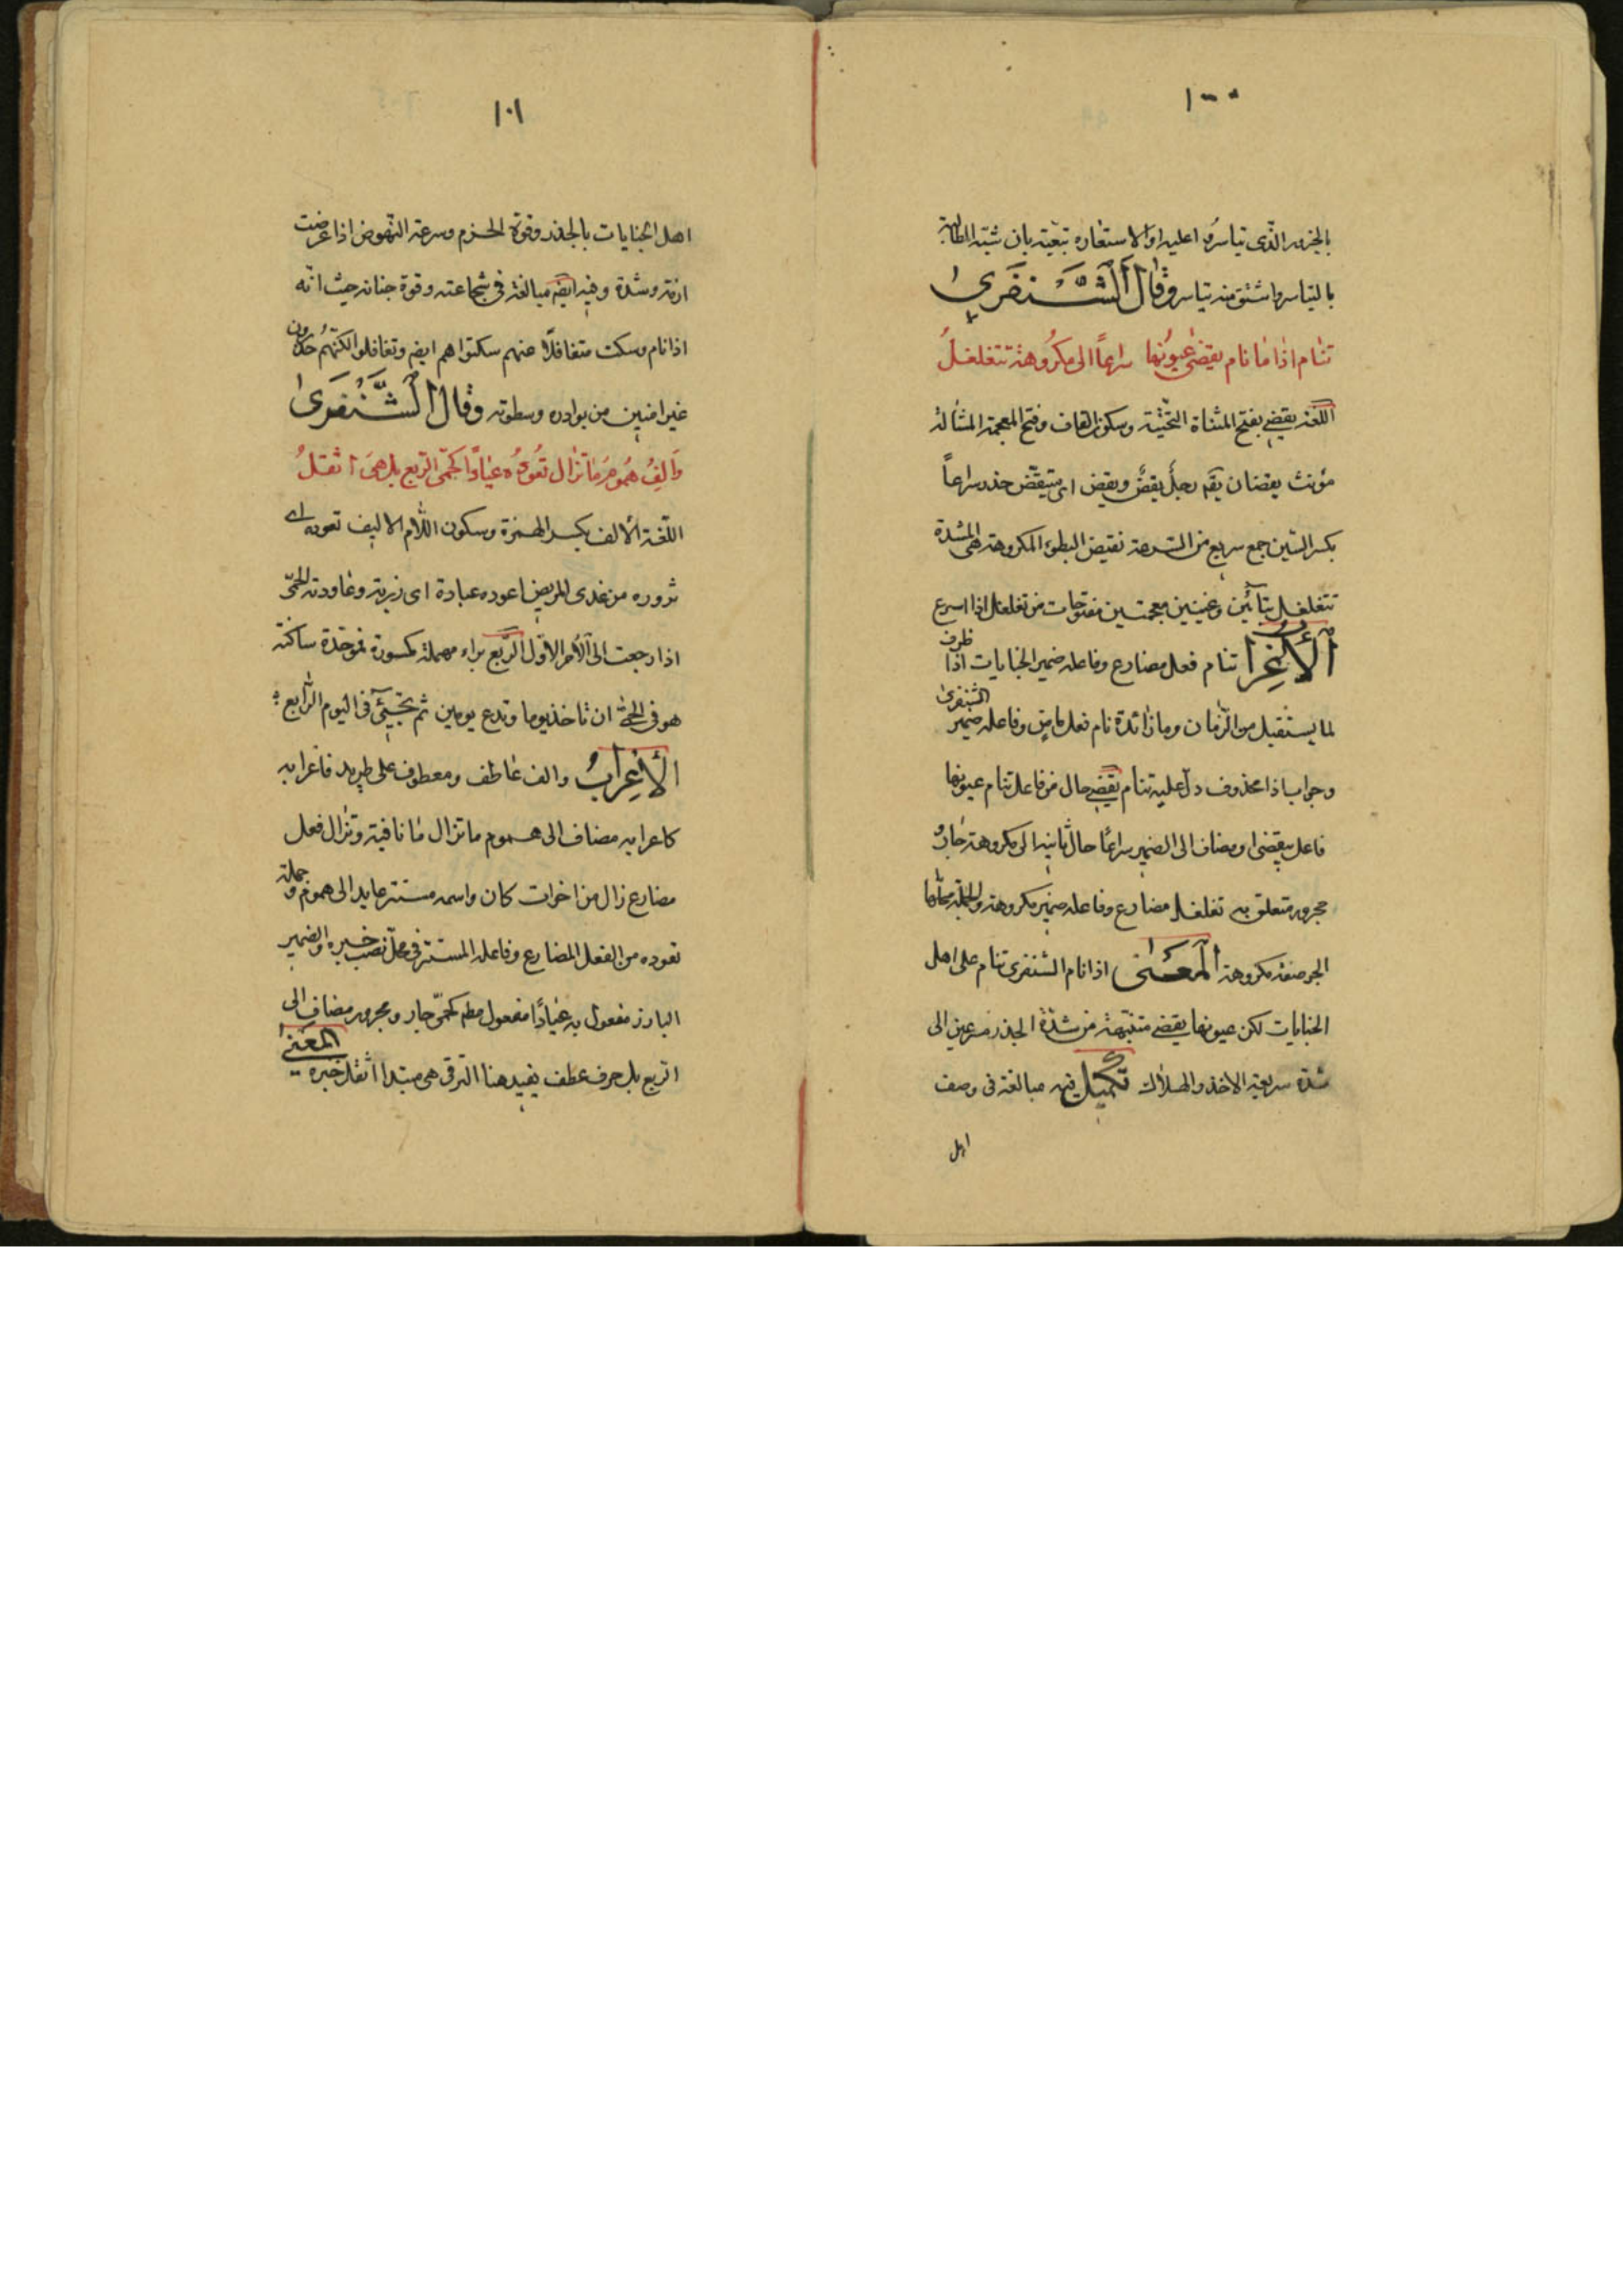 ١٠٠
بالجزور الذى تياسروا عليه او الاستعاره تبعية بان شبه المطالبة
بالتياسر واشتق منه تياسر وقال الشنفرى
تنام اذا ما نام يقضى عيونها سراعاً الى مكروهة تتغلغل
اللغة يقضى بفتح المثناة التحتية وسكون القاف وفتح المعجمة المشالة
مؤنث يقضان يقم رجل يقض ويقض اى متيقض حذر سراعاً
بكسر السين جمع سريع من السرعة نقيض البطوء المكروهة هى الشدة
تتغلغل بتائين وغينين معجمتين مفتوحات من تغلغل اذا اسرع
الأعراب تنام فعل مضارع وفاعله ضمير الجنايات اذا ظرف
لما يستقبل من الزمان وما زائدة نام فعل ماض وفاعله ضمير الشنفرى
وجواب اذا محذوف دل عليه تنام يقضى حال من فاعل تنام عيونها
فاعل يقضى ومضاف الى الضمير سراعاً حال ثانيه الى مكروهة جار و
مجرور متعلق به تغلغل مضارع وفاعله ضمير مكروهة والجملة محلها
الجر صفة مكروهة المعنى اذا نام الشنفرى تنام على اهل
الجنايات لكن عيونها يقضى متنبهة من شدة الحذر مسرعين الى
شدة سريعة الاخذ والهلاك تكميل فيه مبالغة فى وصف
اهل
١٠١
اهل الجنايات بالحذر وقوة الحزم وسرعة النهوض اذا عرضت
ازمة وشدة وفيه ايضه مبالغة فى شجاعته وقوة جنانه حيث انه
اذا نام وسكت متغافلاً عنهم سكتوا هم ايضه وتغافلوا لكنهم حذرون
غير امنين من بوادره وسطوته وقال الشنفرى
وَالِفُ هُمُومٍ مَا تزال تَعُودُه عياداً كحمّى الرّبع بل هىَ اثقلُ
اللغة الألف بكسر الهمزة وسكون اللام الاليف تعوده اى
تزوره من عدى المريض اعوده عيادة اى زيرته وعاودته الحمّى
اذا رجعت الى الأمر الاوّل الرّبع براء مهملة مكسورة فموحّدة ساكنة
هو فى الحمّى ان تاخذ يوما وتدع يومين ثم تجيئ فى اليوم الرّابع
الأعرابُ والف عاطف ومعطوف على طريد فاعرابه
كاعرابه مضاف الى هموم ما تزال ما نافية وتزال فعل
مضارع زال من اخوات كان واسمه مستتر عايد الى هموم و جملة
تعوده من الفعل المضارع وفاعله المستتر فى محل نصب خبره والضمير
البارز مفعول به عياداً مفعول مطم كحمّى جار و مجرور مضاف الى
الربع بل حرف عطف يفيد هنا الترقى هى مبتدا اثقل خبره المعنى